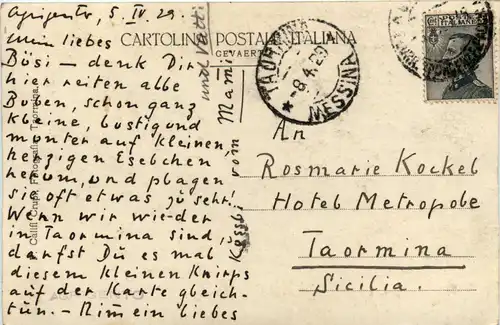 Agrigento, 5. IV. 29.
Mein liebes
Bösi – denk Dir
hier reiten alle
Buben, schon ganz
kleine, lustig und
munter auf kleinen,
herzigen Eselchen
herum, und plagen
sie oft etwas zu sehr!
Wenn wir wieder
in Taormina sind,
darfst Du es mal
diesem kleinen Knirps
auf der Karte gleich-
tun. – Nimm ein liebes
vom Mami
und Vatti
CARTOLINA POSTALE ITALIANA
GEVAERT
TAORMINA
8.4.29
MESSINA
An
Rosmarie Kockel
Hotel Metropole
Taormina
Sicilia.